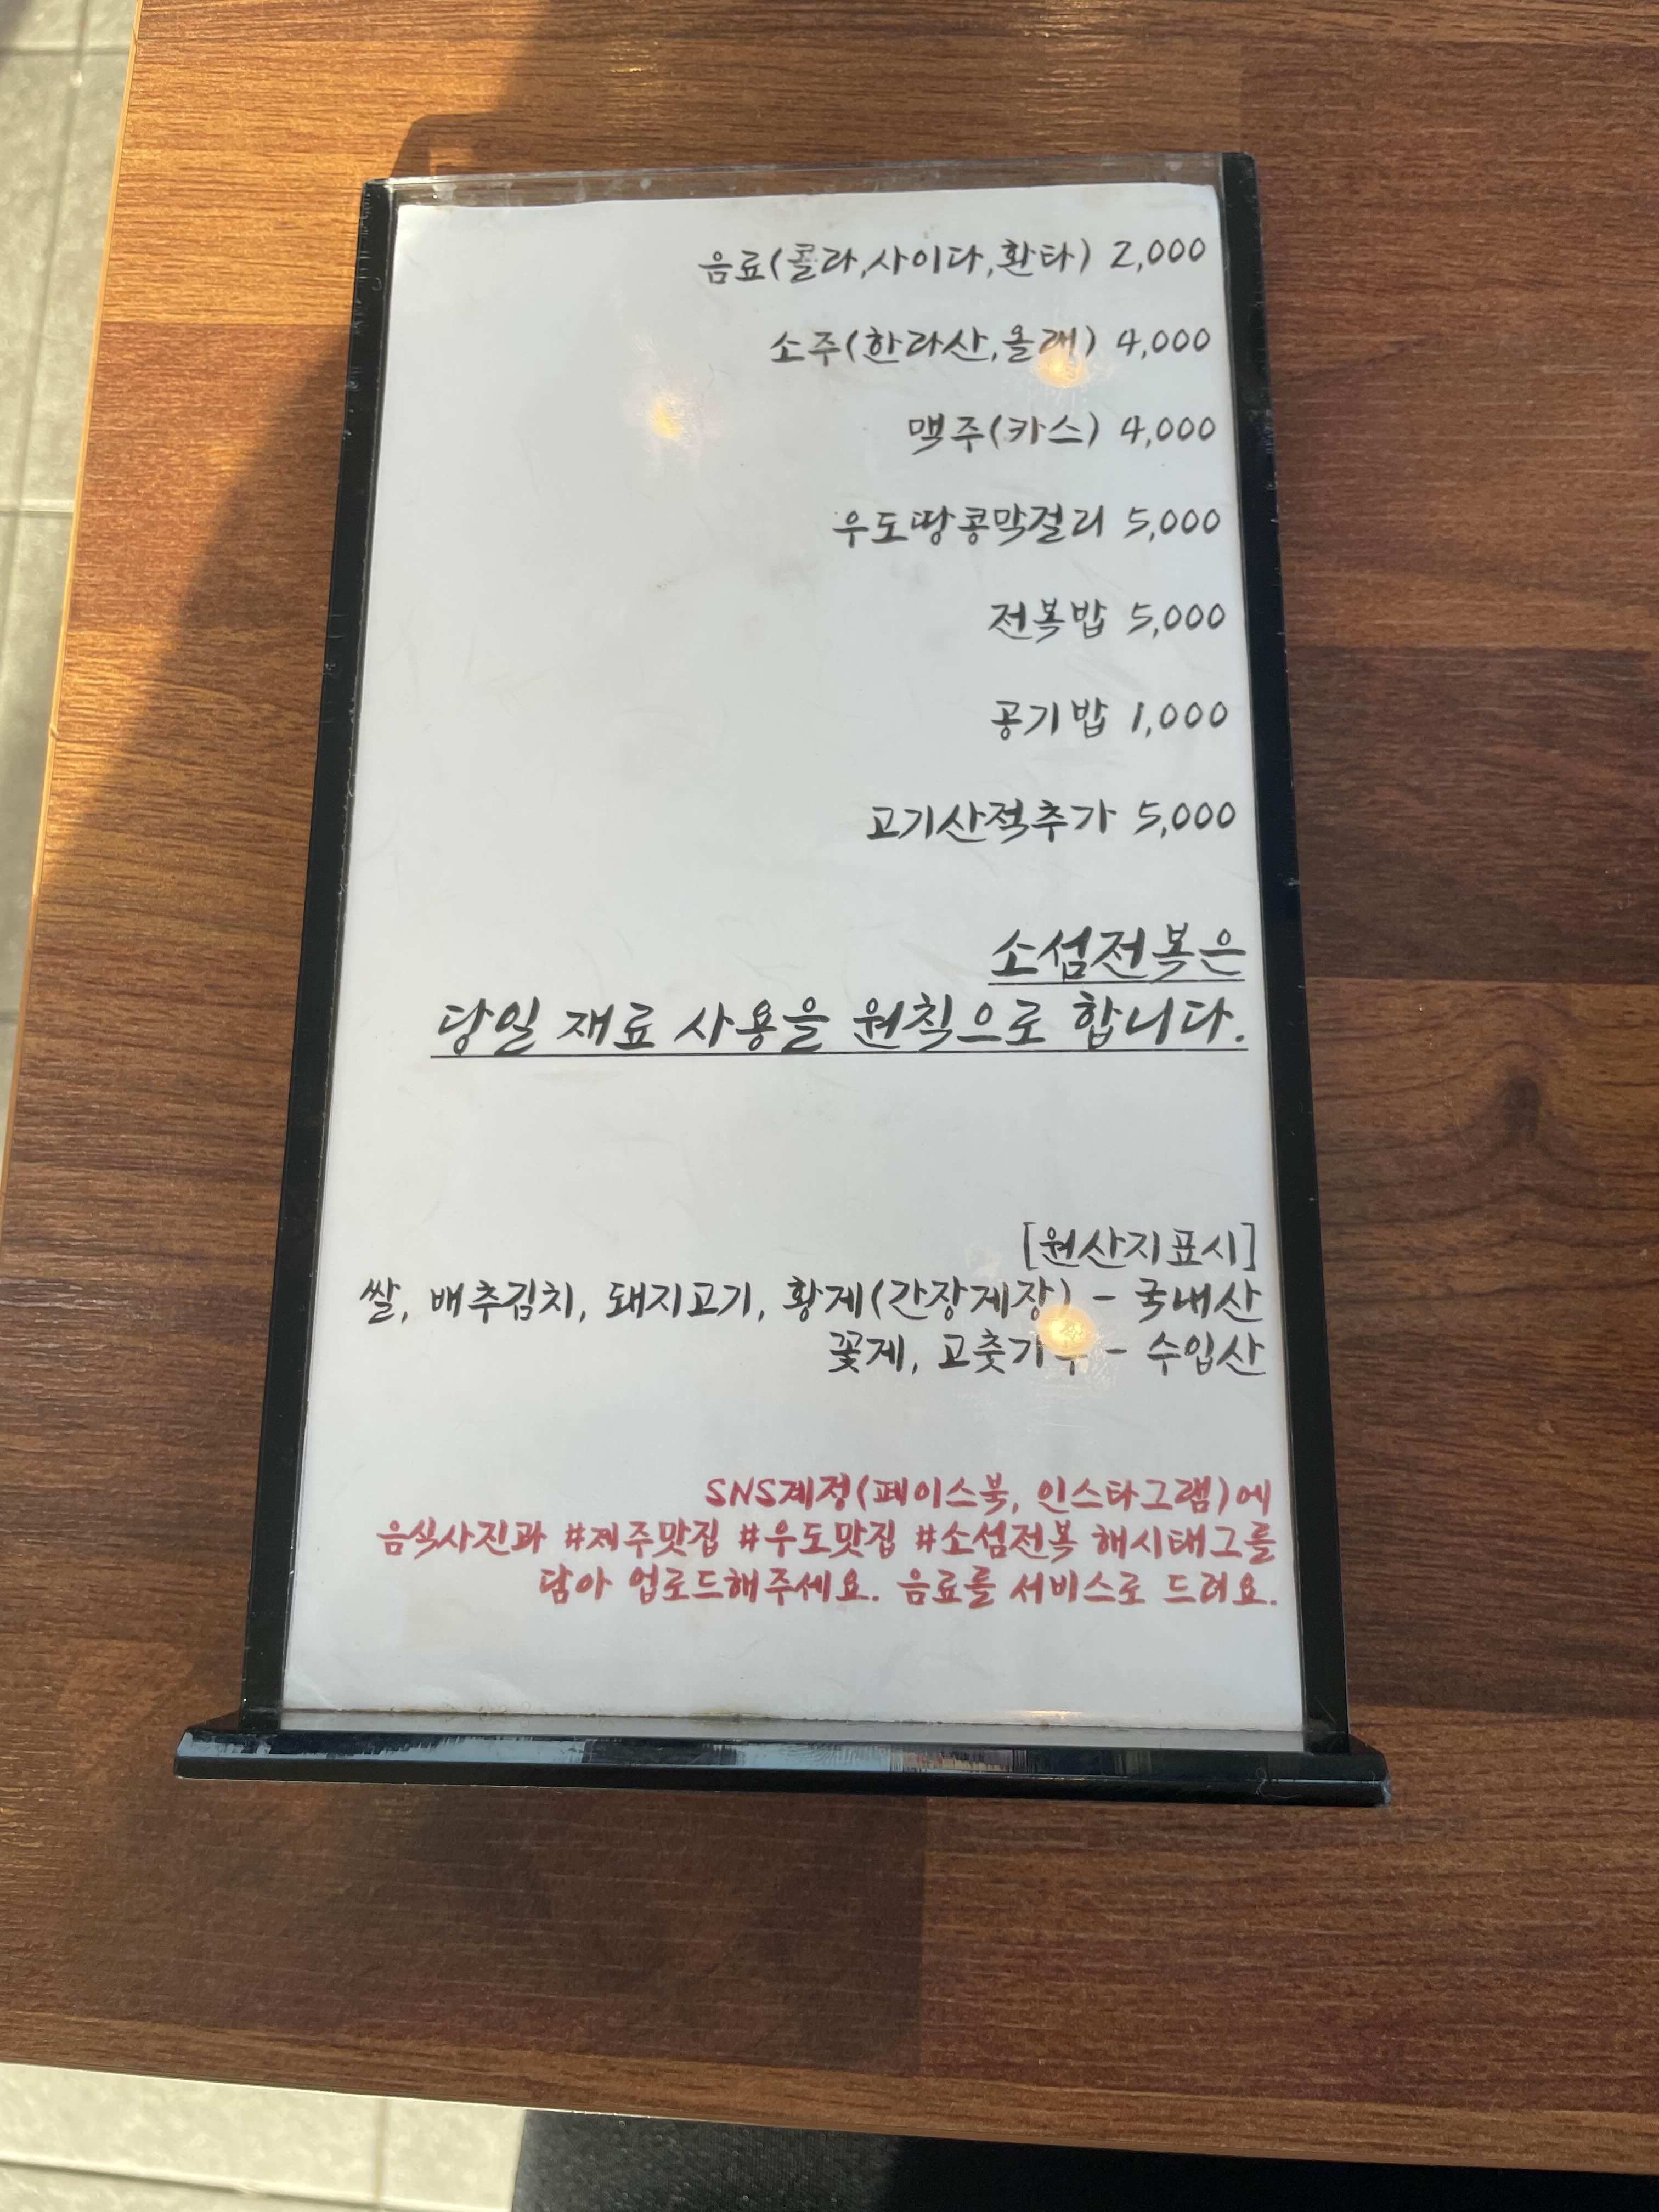 음료(콜라,사이다,환타) 2,000
소주(한라산,올래) 4,000
맥주(카스) 4,000
우도땅콩막걸리 5,000
전복밥 5,000
공기밥 1,000
고기산적추가 5,000
소섬전복은
당일 재료 사용을 원칙으로 합니다.
[원산지표시]
쌀, 배추김치, 돼지고기, 황게(간장게장) - 국내산
꽃게, 고춧가루 - 수입산
SNS계정(페이스북, 인스타그램)에
음식사진과 #제주맛집 #우도맛집 #소섬전복 해시태그를
담아 업로드해주세요. 음료를 서비스로 드려요.